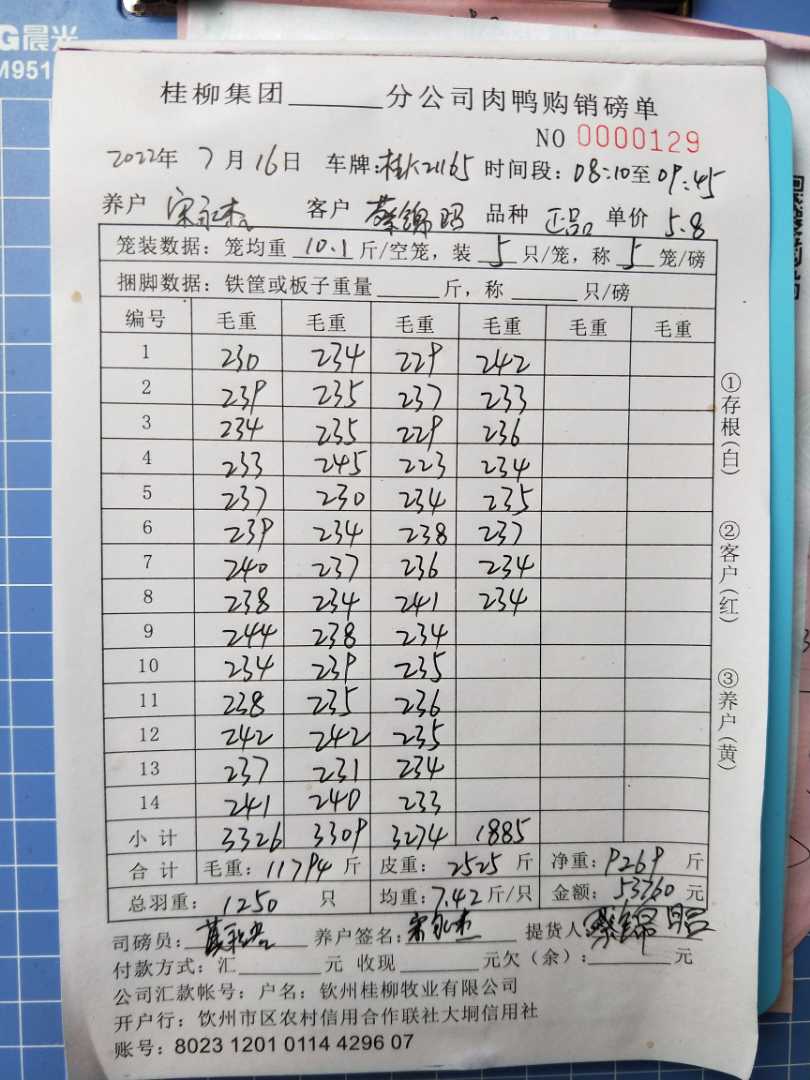 G晨光
M951
桂柳集团______分公司肉鸭购销磅单
NO 0000129
2022年 7月16日 车牌:桂K21165 时间段: 08:10至09:45
养户 宋永杰 客户 蔡锦昭 品种 正品 单价 5.8
笼装数据: 笼均重 10.1 斤/空笼, 装 5 只/笼, 称 5 笼/磅
捆脚数据: 铁筐或板子重量______斤, 称______只/磅
编号 毛重 毛重 毛重 毛重 毛重 毛重
1 230 234 229 242
2 239 235 237 233
3 234 235 229 236
4 233 245 223 234
5 237 230 234 235
6 239 234 238 237
7 240 237 236 234
8 238 234 241 234
9 244 238 234
10 234 239 235
11 238 235 236
12 242 242 235
13 237 231 234
14 241 240 233
小计 3326 3309 3274 1885
合计 毛重: 11794 斤 皮重: 2525 斤 净重: 9269 斤
总羽重: 1250 只 均重: 7.42 斤/只 金额: 53760 元
司磅员: 养户签名: 宋永杰 提货人: 蔡锦昭
付款方式: 汇______元 收现______元欠（余）:______元
公司汇款帐号: 户名: 钦州桂柳牧业有限公司
开户行: 钦州市区农村信用合作联社大垌信用社
账号: 8023 1201 0114 4296 07
①存根(白)
②客户(红)
③养户(黄)